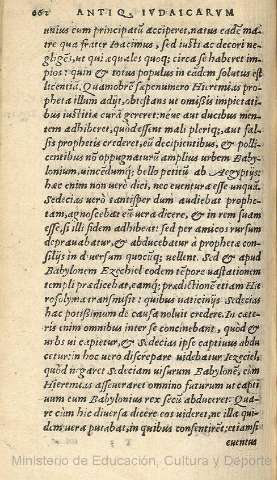 662 ANTIQ. IVDAICARVM
unius cum principatũ acciperet, natus eadẽ ma
tre qua frater Ioacimus, sed iusti ac decori ne
gligẽs, ut qui æquales quoq; circa se haberet im
pios: quin & totus populus in eãdem solutus est
licentiã. Quamobrẽ sæpenumero Hieremias pro
pheta illum adijt, obtestans ut omissis impietati
bus iustitiæ curã gereret: neue aut ducibus men
tem adhiberet, quòd essent mali pleriq;, aut fal
sis prophetis crederet, eũ decipientibus, & polli
centibus nõ oppugnaturũ amplius urbem Baby
lonium, uincẽdumq; bello petitũ ab Aegyptijs:
hæc enim non uerè dici, nec euentura esse unquã.
Sedecias uerò tantisper dum audiebat prophe
tam, agnoscebat eũ uera dicere, & in rem suam
esse, si illi fidem adhibeat: sed per amicos rursum
deprauabatur, & abducebatur à prophetæ con
silijs in diuersum quocũq; uellent. Sed & apud
Babylonem Ezechiel eodem tẽpore uastationem
templi prædicebat, eamq; prædictionẽ etiam Hie
rosolyma transmisit: quibus uaticinijs Sedecias
hac potissimum de causa noluit credere. In cæte
ris enim omnibus inter se concinebant, quòd &
urbs ui capietur, & Sedecias ipse captiuus abdu
cetur: in hoc uero discrepare uidebatur Iezeciel,
quòd negaret Sedeciam uisurum Babylonẽ, cùm
Hieremias asseueraret omnino futurum ut capti
uum eum Babylonius rex secũ abduceret. Qua
re cùm hic diuersa dicere eos uideret, ne illa qui
dem uera putabat, in quibus consentirẽt: etiamsi
euentus
Ministerio de Educación, Cultura y Deporte